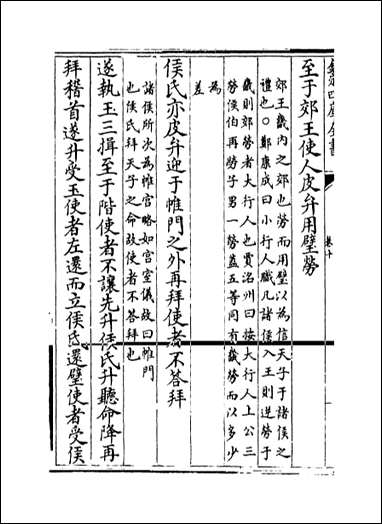 欽定四庫全書
卷十
至于郊王使人皮弁用璧勞
郊王畿内之郊也勞而用璧以為信天子于諸侯之
禮也○鄭康成曰小行人職凡諸侯入王則逆勞于
畿則郊勞者大行人也賈洛州曰按大行人上公三
勞侯伯再勞子男一勞蓋五等同有畿勞而以多少
為
差
侯氏亦皮弁迎于帷門之外再拜使者不答拜
諸侯所次為帷宫略如宫室儀故曰帷門
也侯氏拜天子之命故使者不答拜也
遂執玉三揖至于階使者不讓先升侯氏升聽命降再
拜稽首遂升受玉使者左還而立侯氏還璧使者受侯